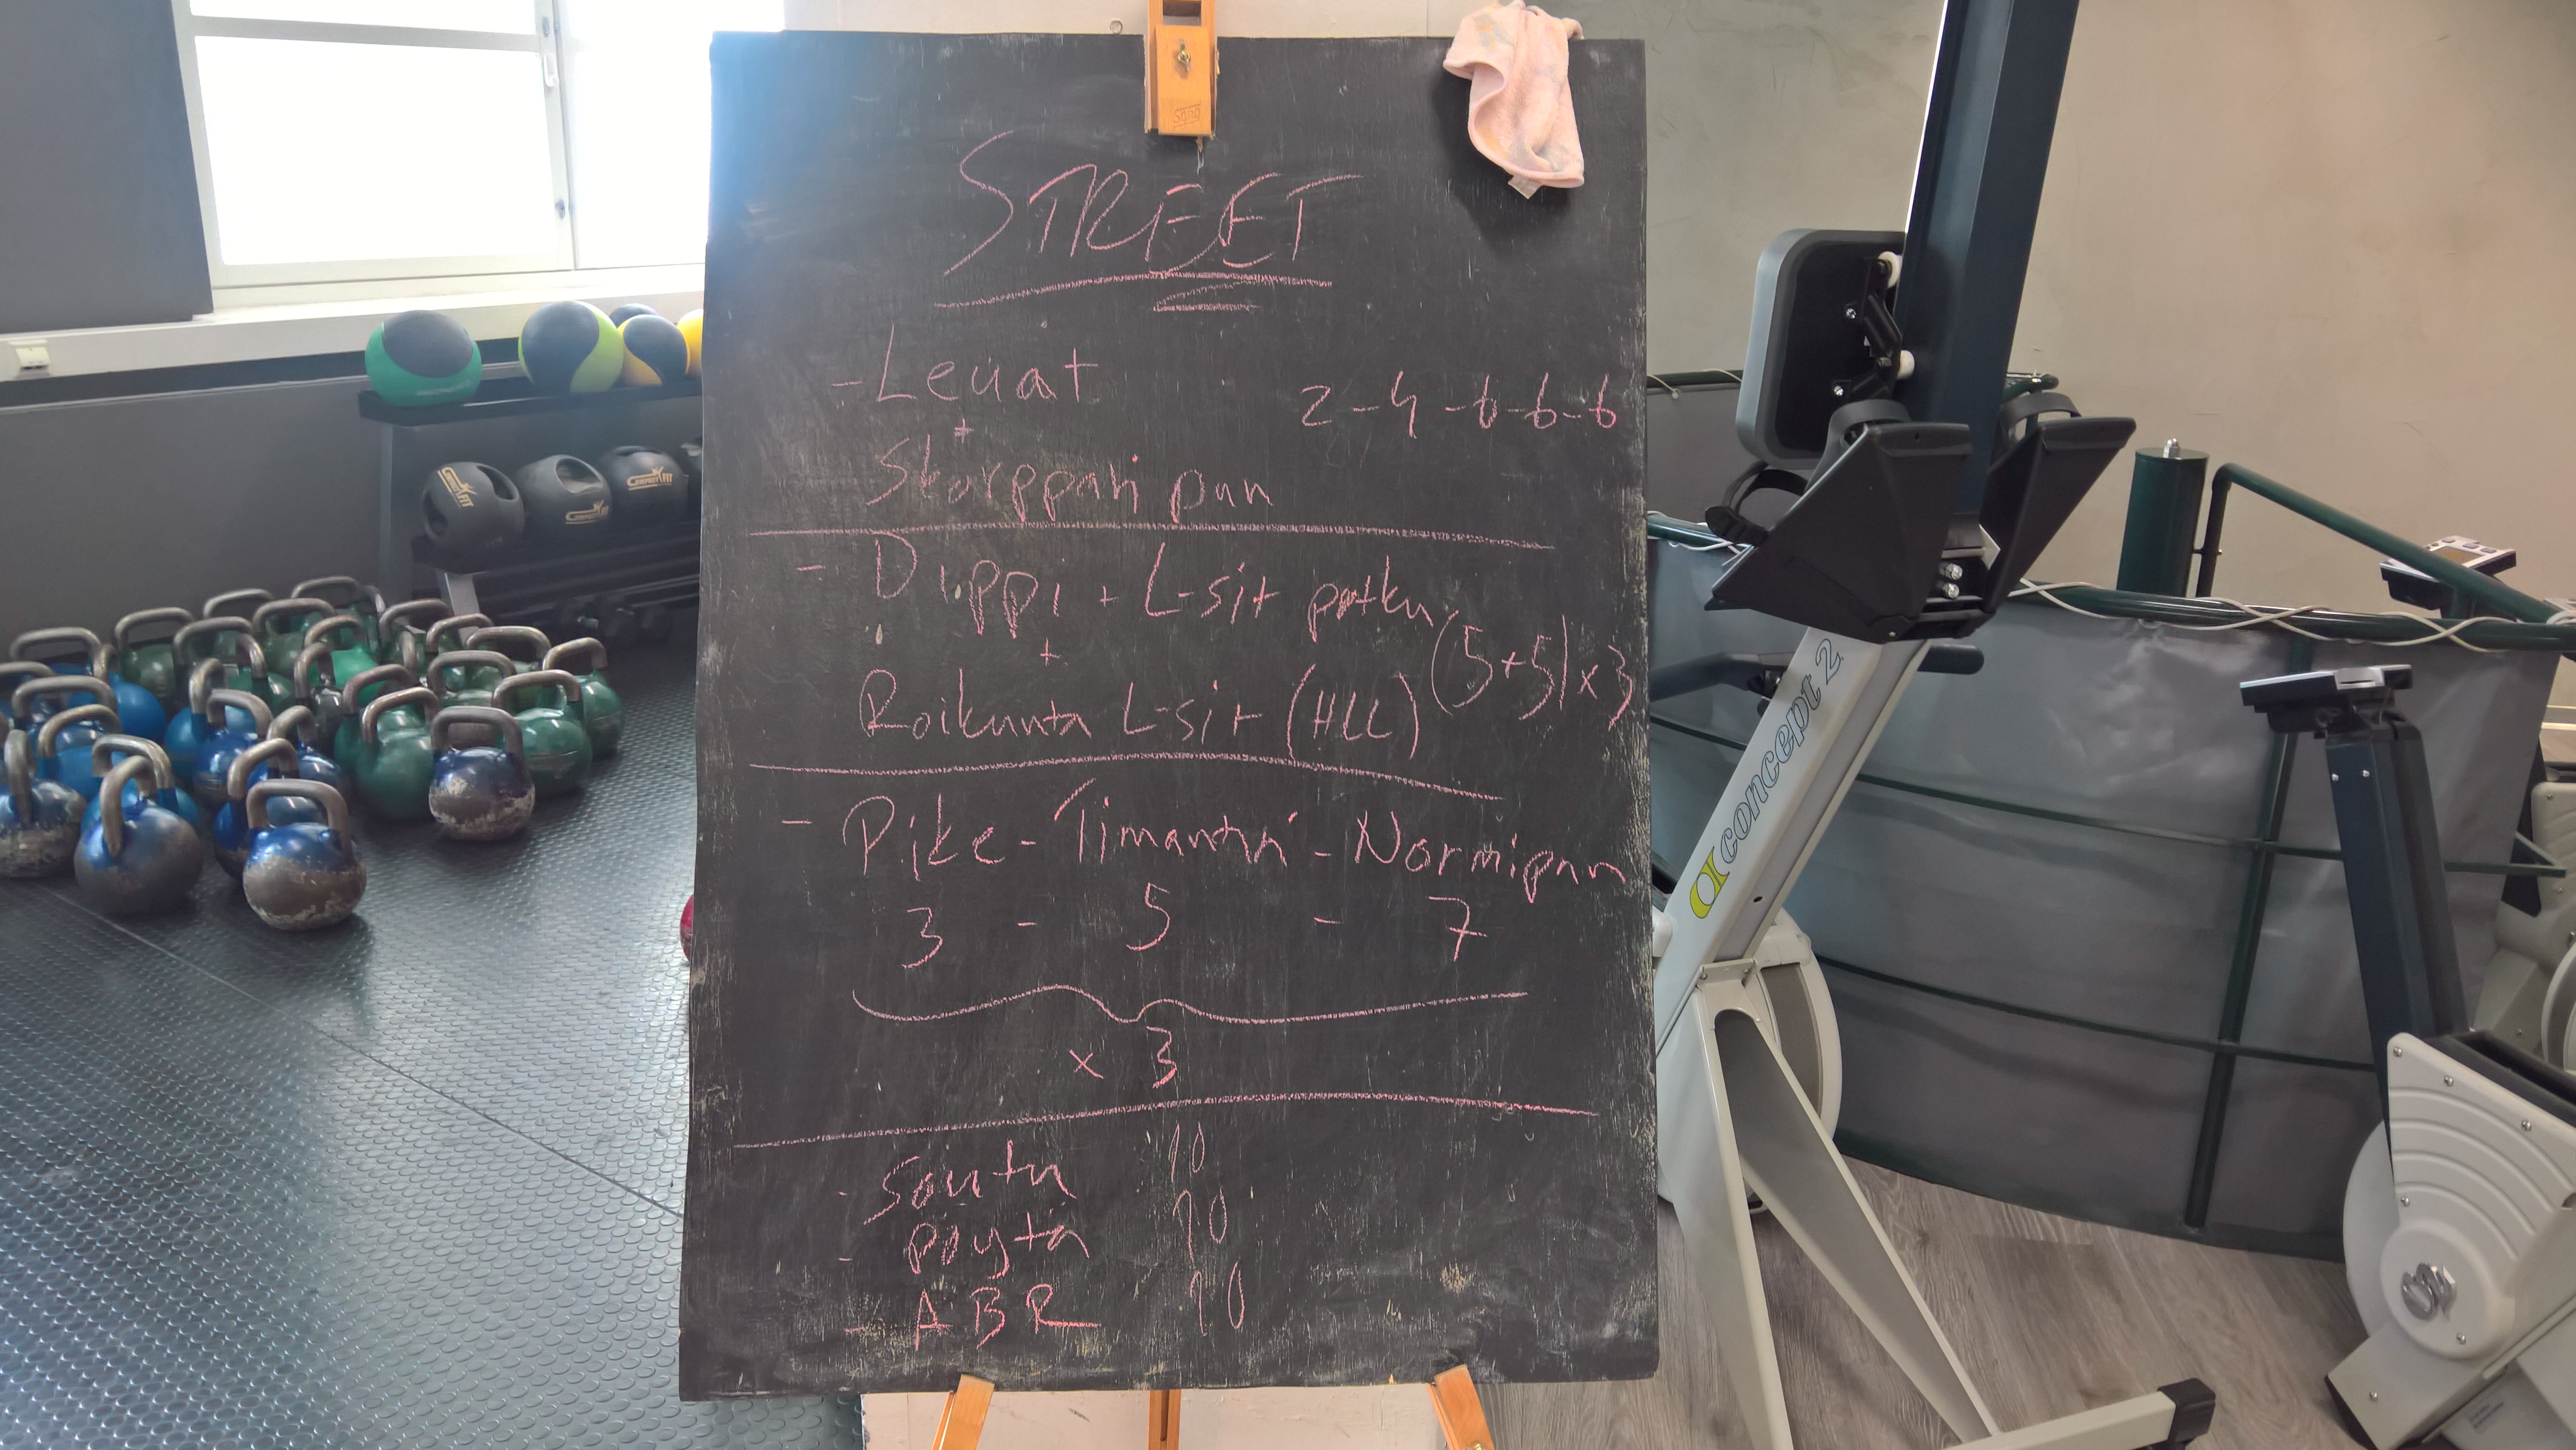 STREET
- Leuat
2-4-6-6-6
+
Skorppari pun
- Dippi + L-sit patku
+
(5+5)x3
Roikunta L-sit (HLL)
- Pike - Timantti - Normipun
3 - 5 - 7
x 3
- Soutu 10
- pöytä 10
- ABR 10
concept 2
COMPACT FIT